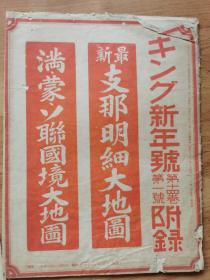 キング新年號
第十四卷
第一號
附録
最新
支那明細大地圖
満蒙ソ聯國境大地圖